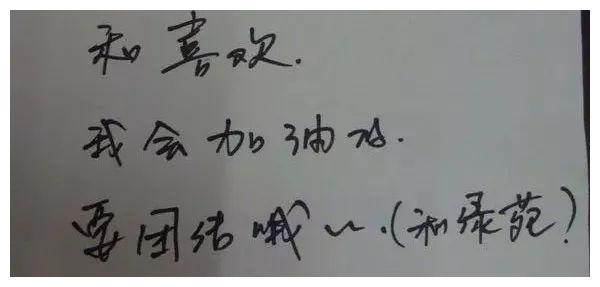 和喜欢.
我会加油哒.
要团结哦~.(和绿苑)